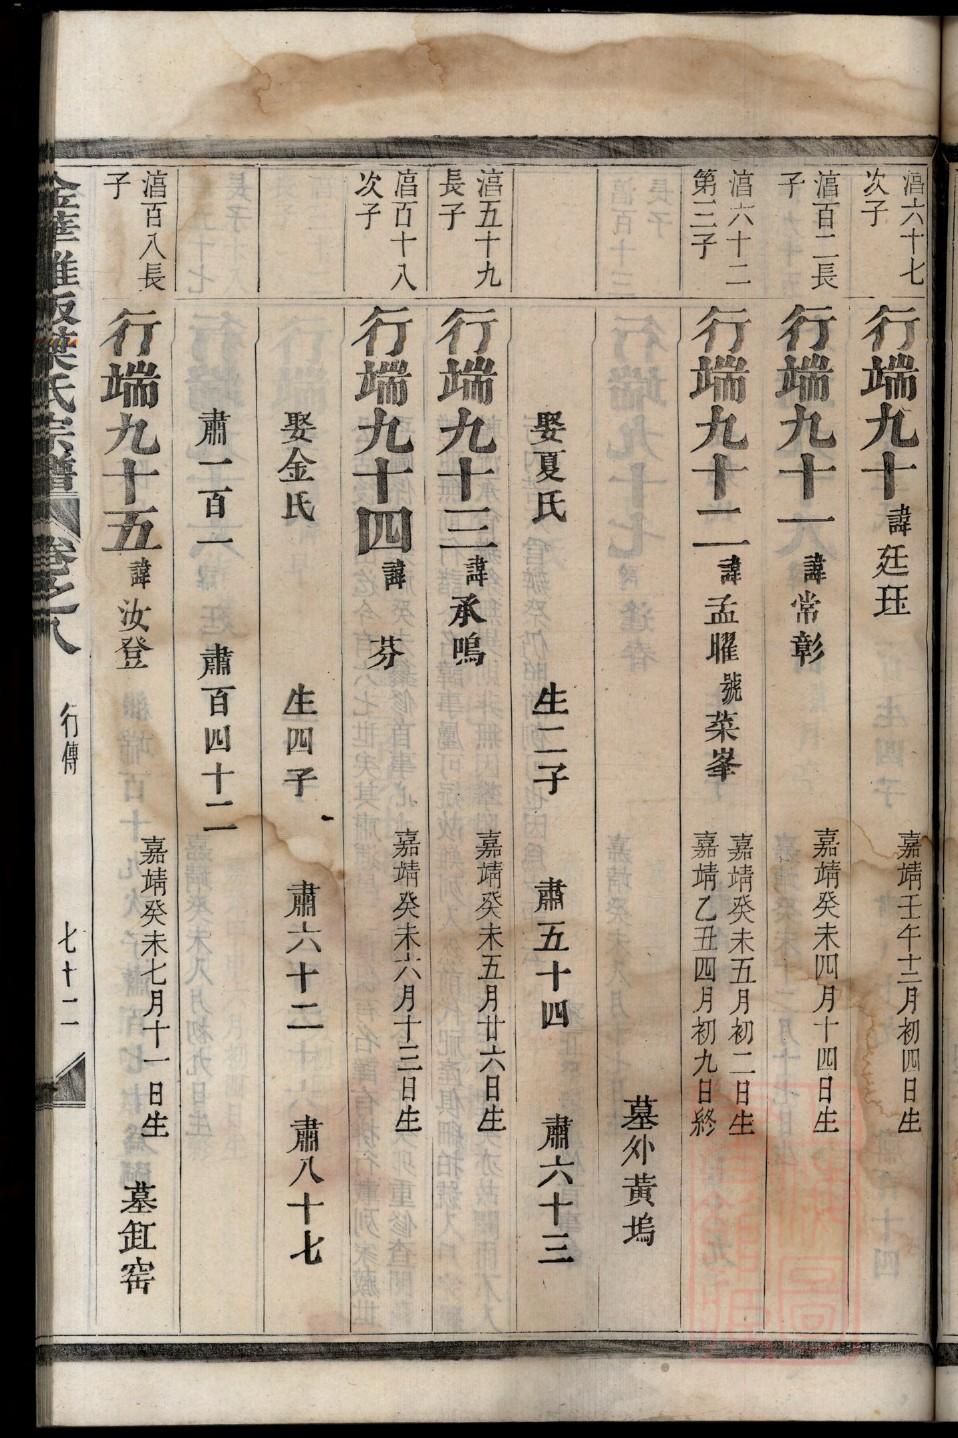 湻六十七
次子
行端九十
諱
廷珏
嘉靖壬午十二月初四日生
湻百二長
子
行端九十一
諱
常彰
嘉靖癸未四月十四日生
湻六十二
第三子
行端九十二
諱
孟曜
號
菜峯
嘉靖癸未五月初二日生
嘉靖乙丑四月初九日終
墓外黃塢
娶夏氏
生二子
肅五十四
肅六十三
湻五十九
長子
行端九十三
諱
承鳴
嘉靖癸未五月廿六日生
湻百十八
次子
行端九十四
諱
芬
嘉靖癸未六月十三日生
娶金氏
生四子
肅六十二
肅八十七
肅一百一
肅百四十二
湻百八長
子
行端九十五
諱
汝登
嘉靖癸未七月十一日生
墓缸窑
金華雅畈葉氏宗譜
卷之八
行傳
七十二